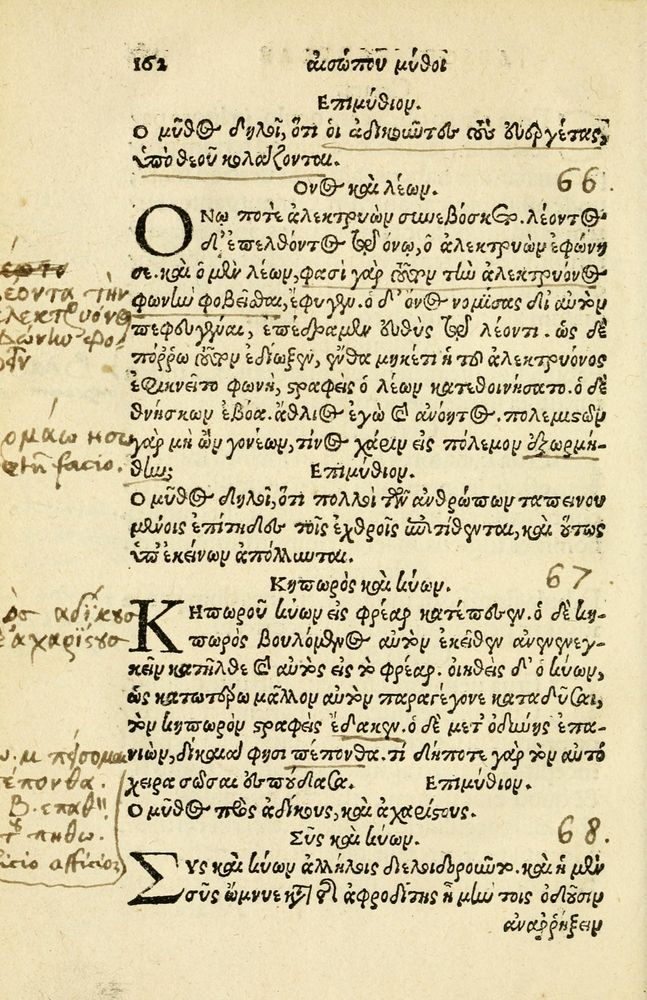 162 αἰσώπου μῦθοι
Ἐπιμύθιον.
Ὁ μῦθος δηλοῖ, ὅτι οἱ ἀδικοῦντες τοὺς εὐεργέτας,
ὑπὸ θεοῦ κολάζονται.
Ὄνος καὶ λέων. 66.
ΟΝῳ ποτὲ ἀλεκτρυὼν συνεβόσκετο. λέοντος
δ' ἐπελθόντος τῷ ὄνῳ, ὁ ἀλεκτρυὼν ἐφώνη
σε. καὶ ὁ μὲν λέων, φασὶ γὰρ τοῦτον τὴν ἀλεκτρυόνος
φωνὴν φοβεῖσθαι, ἔφυγεν. ὁ δ' ὄνος νομίσας δι' αὐτὸν
πεφευγέναι, ἐπέδραμεν εὐθὺς τῷ λέοντι. ὡς δὲ
πόῤῥω τοῦτον ἐδίωξεν, ἔνθα μηκέτι ἡ τοῦ ἀλεκτρυόνος
ἐφικνεῖτο φωνὴ, στραφεὶς ὁ λέων κατεθοινήσατο. ὁ δὲ
θνήσκων ἐβόα. ἄθλιος ἐγὼ καὶ ἀνόητος. πολεμιστῶν
γὰρ μὴ ὢν γονέων, τίνος χάριν εἰς πόλεμον ἐξωρμή-
θην; Ἐπιμύθιον.
Ὁ μῦθος δηλοῖ, ὅτι πολλοὶ τῶν ἀνθρώπων ταπεινου
μένοις ἐπίτηδες τοῖς ἐχθροῖς ἐπιτίθενται, καὶ οὕτως
ὑπ' ἐκείνων ἀπόλλυνται.
Κηπωρὸς καὶ κύων. 67.
ΚΗπωροῦ κύων εἰς φρέαρ κατέπεσεν. ὁ δὲ κη-
πωρὸς βουλόμενος αὐτὸν ἐκεῖθεν ἀνενεγ-
κεῖν κατῆλθε καὶ αὐτὸς εἰς τὸ φρέαρ. οἰηθεὶς δ' ὁ κύων,
ὡς κατωτέρω μᾶλλον αὐτὸν παραγέγονε καταδῦσαι,
τὸν κηπωρὸν στραφεὶς ἔδακεν. ὁ δὲ μετ' ὀδύνης ἐπα-
νιὼν, δίκαια φησι πέπονθα. τί δήποτε γὰρ τὸν αὐτό
χειρα σῶσαι ἐσπούδασα. Ἐπιμύθιον.
Ὁ μῦθος πρὸς ἀδίκους, καὶ ἀχαρίστους.
Σῦς καὶ κύων. 68.
ΣΥς καὶ κύων ἀλλήλοις διελοιδοροῦντο. καὶ ἡ μὲν
σῦς ὤμνυε κατὰ τῆς ἀφροδίτης ἦ μὴν τοῖς ὀδοῦσιν
ἀναῤῥήξειν
έοντα τὴν
λεκτρυόνος
φώνην φο
ορμάω ησω
facio.
ὸς ἀδίκους
ἀχαρίστους
ω. μ πήσομαι
έπονθα.
β. επαθ
πηθω.
afficior